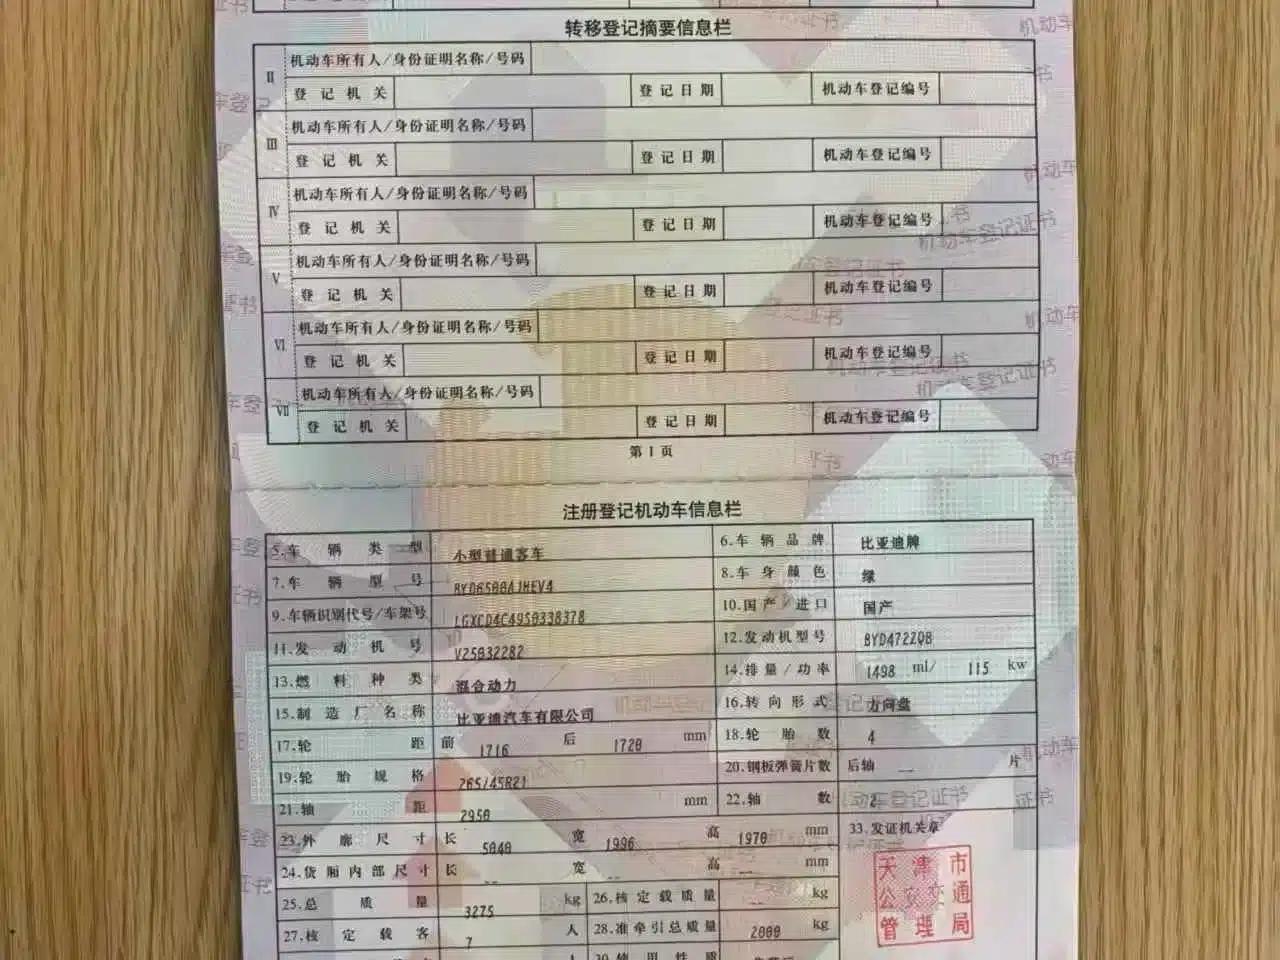 转移登记摘要信息栏
II 机动车所有人/身份证明名称/号码
登记机关 登记日期 机动车登记编号
III 机动车所有人/身份证明名称/号码
登记机关 登记日期 机动车登记编号
IV 机动车所有人/身份证明名称/号码
登记机关 登记日期 机动车登记编号
V 机动车所有人/身份证明名称/号码
登记机关 登记日期 机动车登记编号
VI 机动车所有人/身份证明名称/号码
登记机关 登记日期 机动车登记编号
VII 机动车所有人/身份证明名称/号码
登记机关 登记日期 机动车登记编号
第1页
注册登记机动车信息栏
5.车辆类型 小型普通客车 6.车辆品牌 比亚迪牌
7.车辆型号 8.车身颜色 绿
9.车辆识别代号/车架号 LGXCD4C49S0338378 10.国产/进口 国产
11.发动机号 V25032282 12.发动机型号 BYD472ZQB
13.燃料种类 混合动力 14.排量/功率 1498 ml/ 115 kw
15.制造厂名称 比亚迪汽车有限公司 16.转向形式 方向盘
17.轮距 前 1716 后 1720 mm 18.轮胎数 4
19.轮胎规格 265/45R21 20.钢板弹簧片数 后轴 -- 片
21.轴距 2950 mm 22.轴数 2
23.外廓尺寸 长 5040 宽 1996 高 1970 mm 33.发证机关章
24.货厢内部尺寸 长 -- 宽 -- 高 -- mm
25.总质量 3275 kg 26.核定载质量 -- kg
27.核定载客 7 人 28.准牵引总质量 2000 kg
30.使用性质
天津市
公安交通
管理局
机动车登记证书